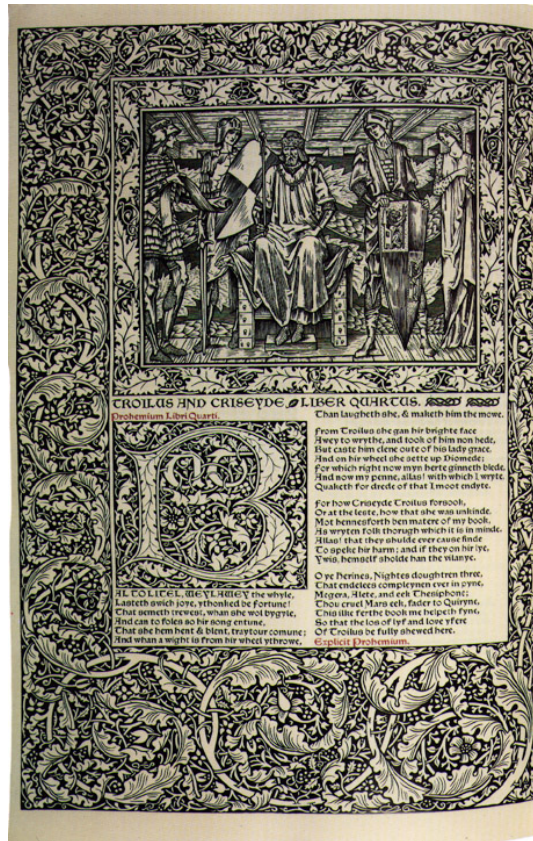 TROILUS AND CRISEYDE. LIBER QUARTUS.
Prohemium Libri Quarti.
BUT AL TO LITEL, WEYLAWEY the whyle,
Lasteth swich joye, ythonked be fortune!
That semeth trewest, whan she wol bygyle,
And can to foles so hir song entune,
That she hem hent & blent, traytour comune;
And whan a wight is from hir wheel ythrowe,
Than laugheth she, & maketh him the mowe.
From Troilus she gan hir brighte face
Awey to wrythe, and took of him non hede,
But caste him clene oute of his lady grace,
And on hir wheel she sette up Diomede;
For which right now myn herte ginneth blede,
And now my penne, allas! with which I wryte,
Quaketh for drede of that I moot endyte.
For how Criseyde Troilus forsook,
Or at the leste, how that she was unkinde,
Mot hennesforth ben matere of my book,
As wryten folk thorugh which it is in minde.
Allas! that they shulde ever cause finde
To speke hir harm; and if they on hir lye,
Ywis, hemself sholde han the vilanye.
O ye Herines, Nightes doughtren three,
That endelees compleynen ever in pyne,
Megera, Alete, and eek Thesiphone;
Thou cruel Mars eek, fader to Quiryne,
This ilke ferthe book me helpeth fyne,
So that the los of lyf and love yfere
Of Troilus be fully shewed here.
Explicit Prohemium.